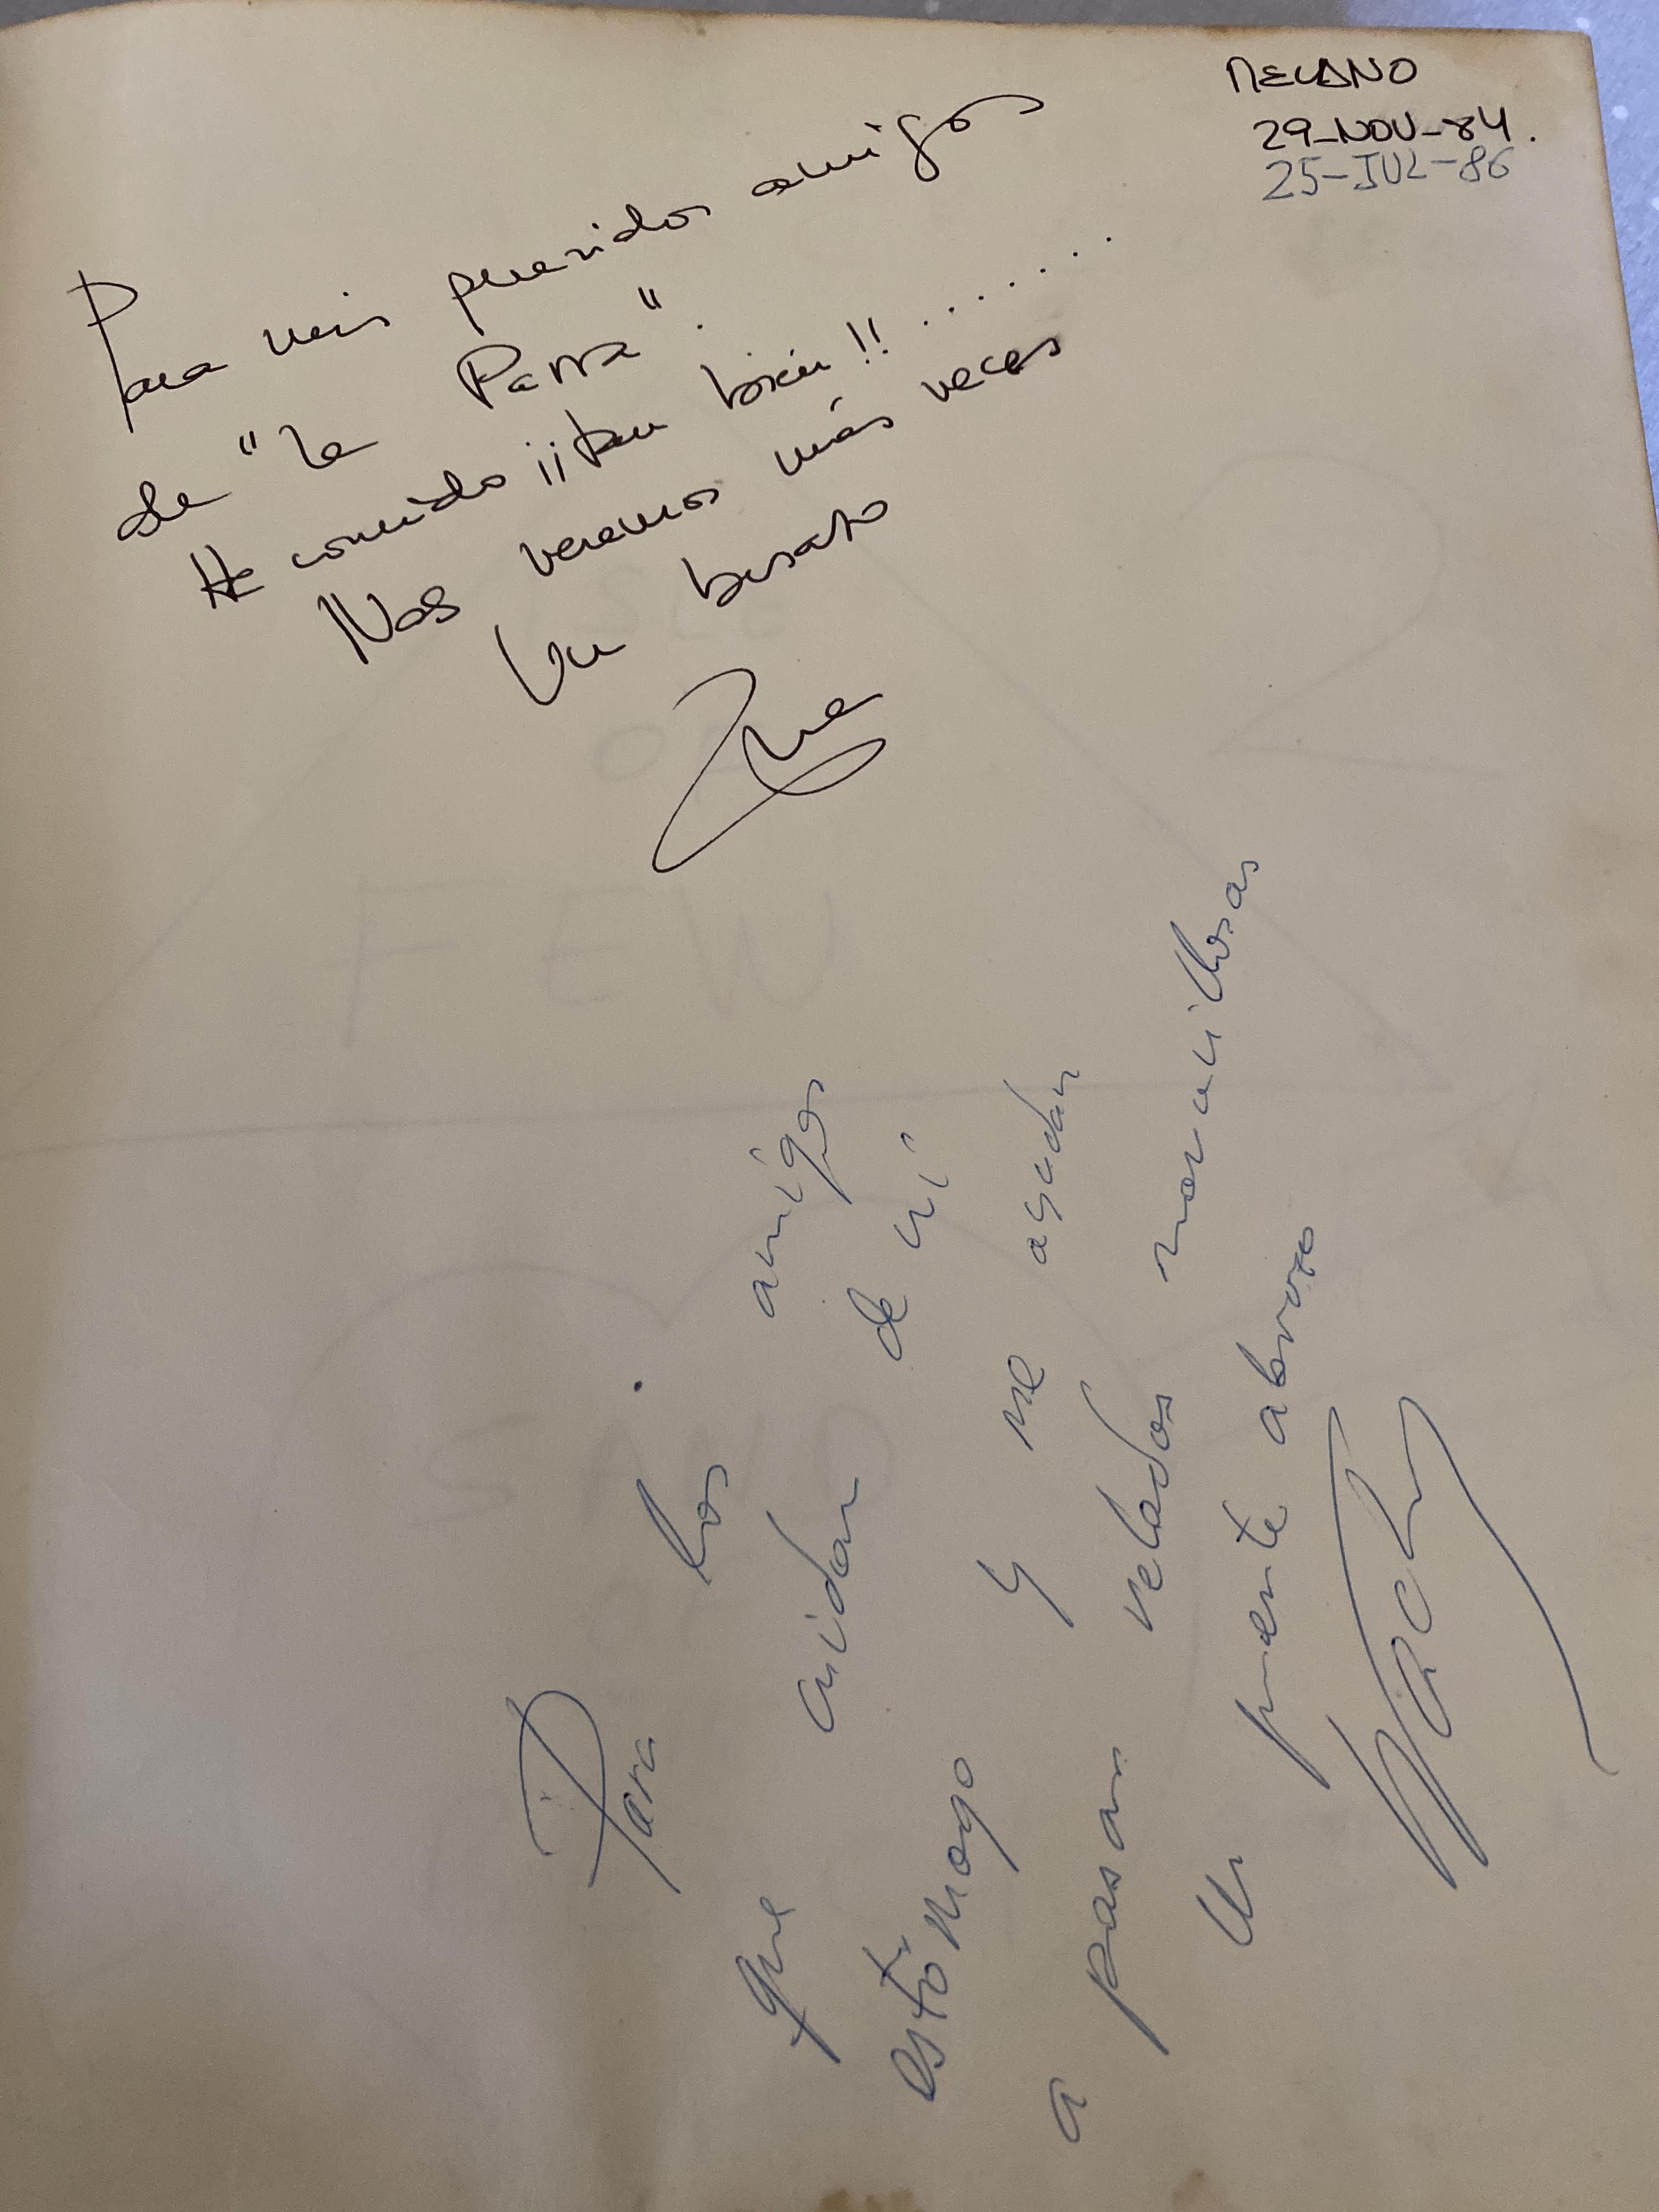 MECANO
29-NOV-84.
25-JUL-86
Para mis queridos amigos
de "la Parra".
He comido ¡¡tan bien!! .......
Nos veremos más veces
Un besazo
Ana
Para los amigos
que cuidan de mi
estómago y me ayudan
a pasar veladas maravillosas
Un fuerte abrazo
Nacho